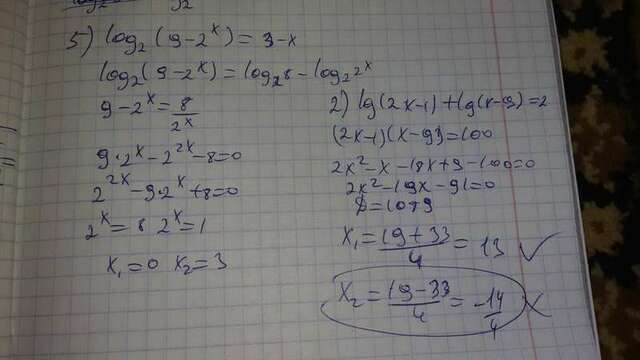 5) log₂(9-2ˣ)=3-x
log₂(9-2ˣ)=log₂8-log₂2ˣ
9-2ˣ=8/2ˣ
9·2ˣ-2²ˣ-8=0
2²ˣ-9·2ˣ+8=0
2ˣ=8 2ˣ=1
x₁=0 x₂=3
2) lg(2x-1)+lg(x-9)=2
(2x-1)(x-9)=100
2x²-x-18x+9-100=0
2x²-19x-91=0
D=1089
x₁=(19+33)/4=13 ✓
x₂=(19-33)/4=-14/4 ×